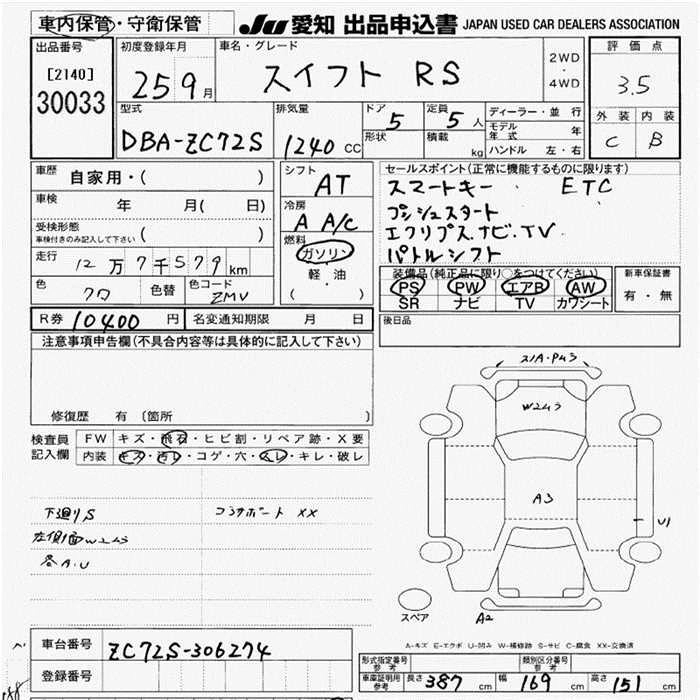 車内保管・守衛保管 JU 愛知 出品申込書 JAPAN USED CAR DEALERS ASSOCIATION
出品番号
[2140]
30033
初度登録年月
25 9月
車名・グレード
スイフト RS
2WD
・
4WD
評価点
3.5
外装 内装
C B
型式
DBA-ZC72S
排気量
1240 CC
ドア 5
形状
定員 5 人
積載 kg
ディーラー・並行
モデル年式 年
ハンドル 左・右
車歴 自家用・( )
車検 年 月( 日)
受検形態
車検付きのみ記入して下さい ( )
走行 12万7千579km
色 クロ 色替 色コード ZMV
シフト
AT
冷房
A A/C
燃料
ガソリン
軽・油
( )
セールスポイント(正常に機能するものに限ります)
スマートキー ETC
プッシュスタート
エクリプスナビ.TV
パドルシフト
装備品(純正品に限り○をつけてください)
PS PW エアB AW
SR ナビ TV カワシート
新車保証書
有・無
R券 10400 円 名変通知期限 月 日
後日品
注意事項申告欄(不具合内容等は具体的に記入して下さい)
修復歴 有 (箇所
検査員記入欄
FW キズ・飛石・ヒビ割・リペア跡・X要
内装 キズ・汚レ・コゲ・穴・スレ・キレ・破レ
下廻りS
コアサポート XX
左側面W2 43
各A.U
W243
A3
U1
A2
スペア
A-キズ E-エクボ U-凹み W-補修跡 S-サビ C-腐食 XX-交換済
車台番号 ZC72S-306274
登録番号
形式指定番号 参考
類別区分番号 参考
車庫証明用 参考 長さ 387 cm 幅 169 cm 高さ 151 cm